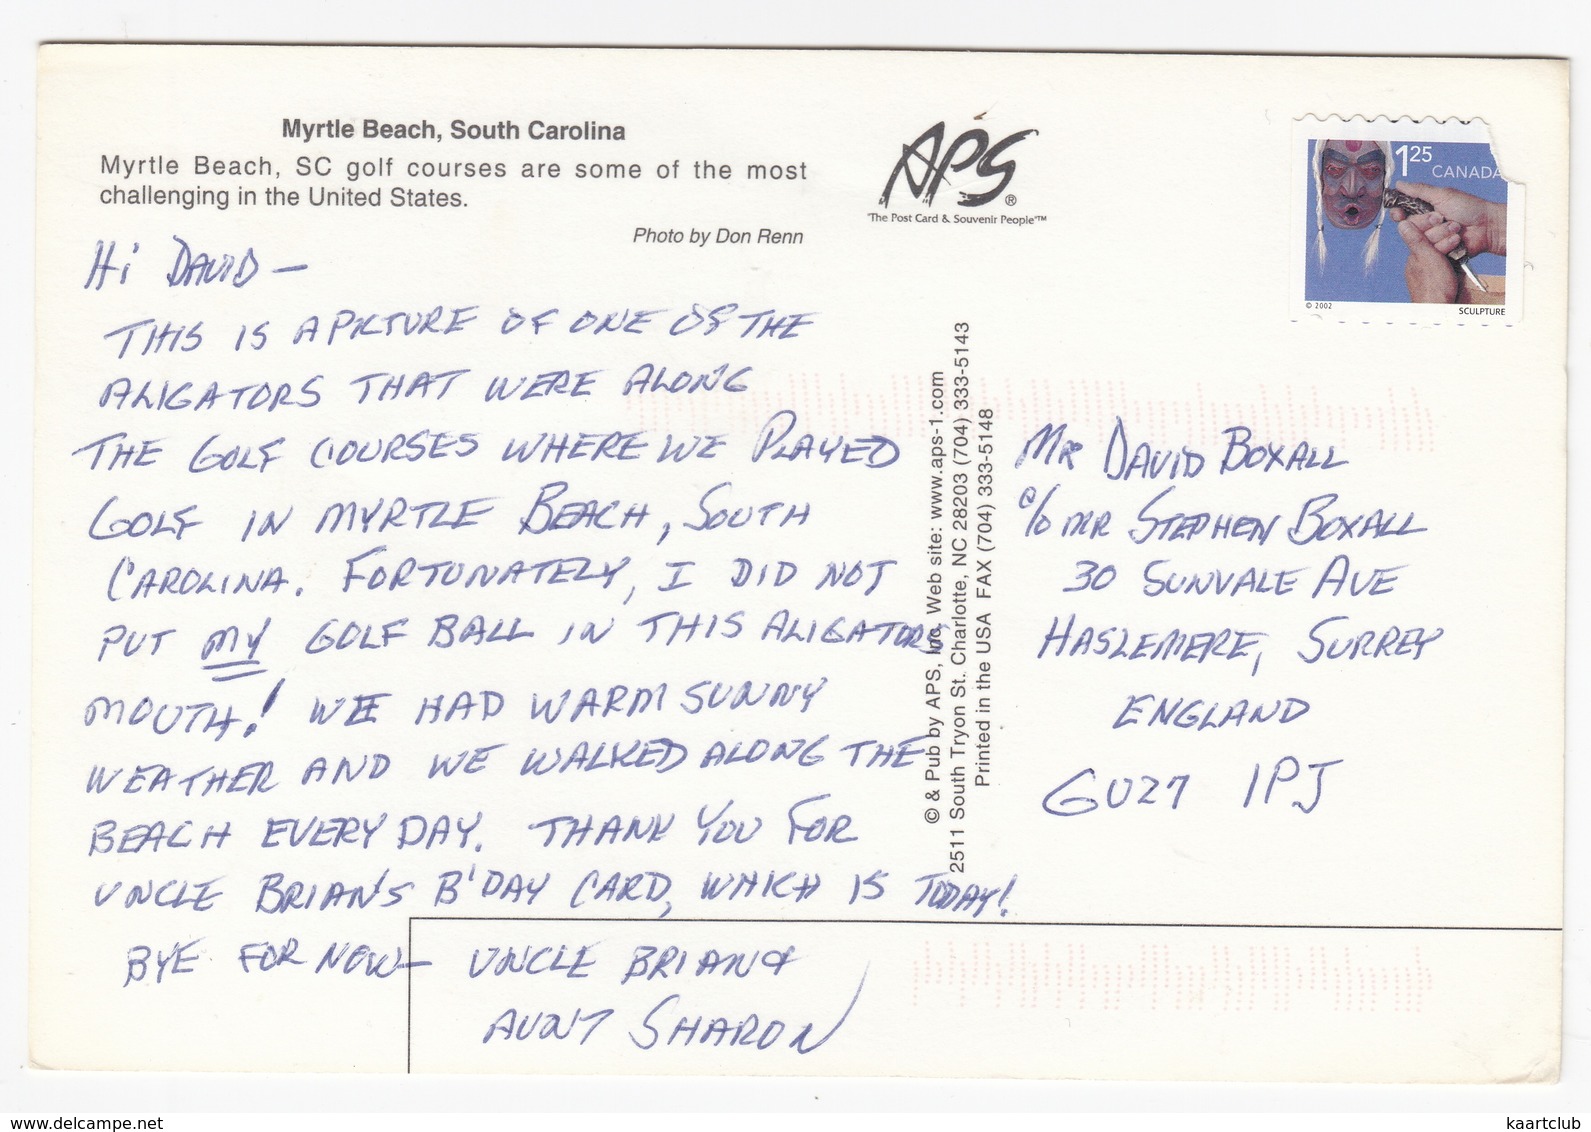 Myrtle Beach, South Carolina
Myrtle Beach, SC golf courses are some of the most
challenging in the United States.
Photo by Don Renn
APS®
"The Post Card & Souvenir People"™
1 25
CANADA
© 2002
SCULPTURE
Hi DAVID —
THIS IS A PICTURE OF ONE OF THE
ALIGATORS THAT WERE ALONG
THE GOLF COURSES WHERE WE PLAYED
GOLF IN MYRTLE BEACH, SOUTH
CAROLINA. FORTUNATELY, I DID NOT
PUT MY GOLF BALL IN THIS ALIGATORS
MOUTH! WE HAD WARM SUNNY
WEATHER AND WE WALKED ALONG THE
BEACH EVERY DAY. THANK YOU FOR
UNCLE BRIAN'S B'DAY CARD, WHICH IS TODAY!
BYE FOR NOW — UNCLE BRIAN &
AUNT SHARON
© & Pub by APS, Inc. Web site: www.aps-1.com
2511 South Tryon St. Charlotte, NC 28203 (704) 333-5143
Printed in the USA FAX (704) 333-5148
MR DAVID BOXALL
c/o MR STEPHEN BOXALL
30 SUNVALE AVE
HASLEMERE, SURREY
ENGLAND
GU27 1PJ
kaartclub